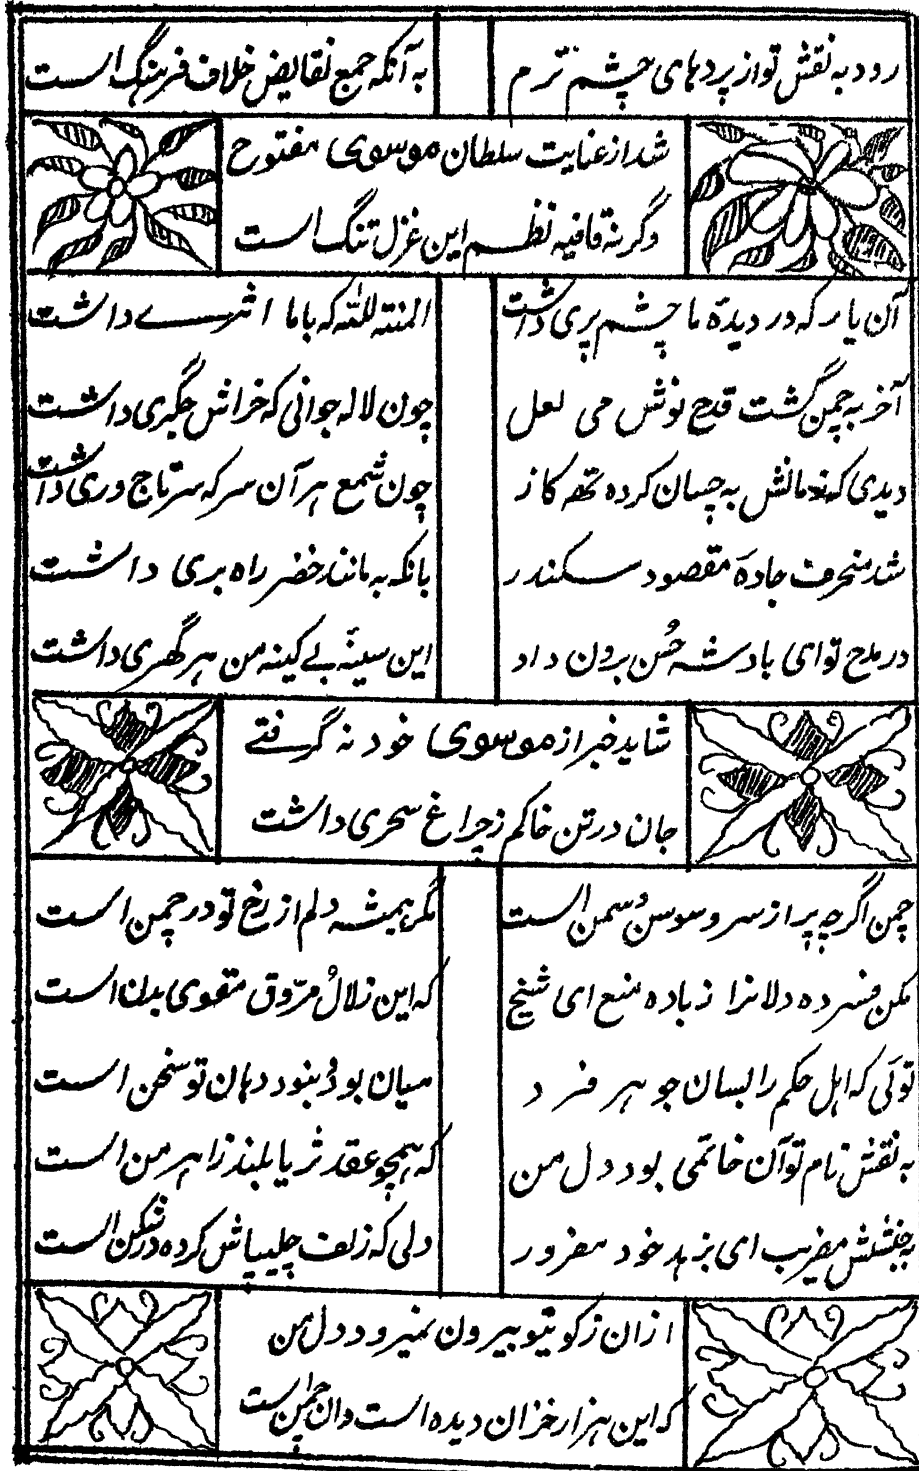 رود به نقش تو از پردهای چشم ترم
به آنکه جمع نقایض خلاف فرهنگ است
شد از عنایت سلطان موسوی مفتوح
وگرنه قافیه نظم این غزل تنگ است
آن یار که در دیدهٔ ما چشم پری داشت
المنته لله که با ما اثرے داشت
آخر به چمن گشت قدح نوش می لعل
چون لاله جوانی که خراش جگری داشت
دیدی که به چسان کرده ته گاز
چون شمع هر آن سر که سر تاج وری داشت
شد منحرف جادهٔ مقصود سکندر
بانکه به مانند خضر راه بری داشت
در مدح تو ای بادشه حُسن برون داد
این سینهٔ بے کینه من هر گهری داشت
شاید خبر از موسوی خود نه گرفتے
جان در تن خاکم ز چراغ سحری داشت
چمن اگرچه پر از سرو و سوسن و سمن است
مگر همیشه دلم از رخ تو در چمن است
مکن فسرده دلانرا ز باده منع ای شیخ
که این زلال مروّق مقوی بدن است
توئی که اهل حکم را بسان جوهر فرد
میان بود و نبود دهان تو سخن است
به نقش نام تو آن خاتمی بود دل من
که همچو عقد ثریا بلند ز اهرمن است
به جنبشش مفریب ای بزهد خود مغرور
دلی که زلف چلیپاش کرده در شکن است
ازان ز کوی تو بیرون نمیرود دل من
که این هزار خزان دیده است وان چمن است